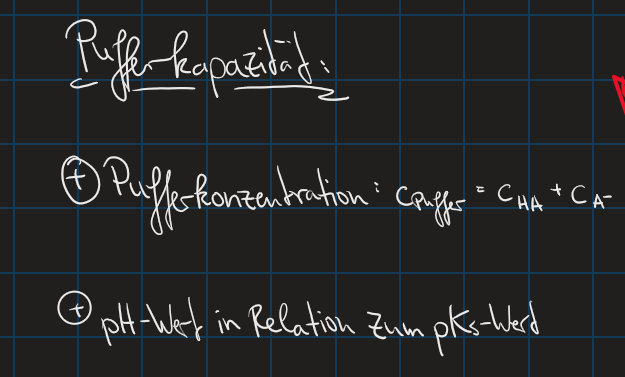 Pufferkapazität:
⊕ Pufferkonzentration: cPuffer = cHA + cA-
⊕ pH-Wert in Relation zum pKs-Wert